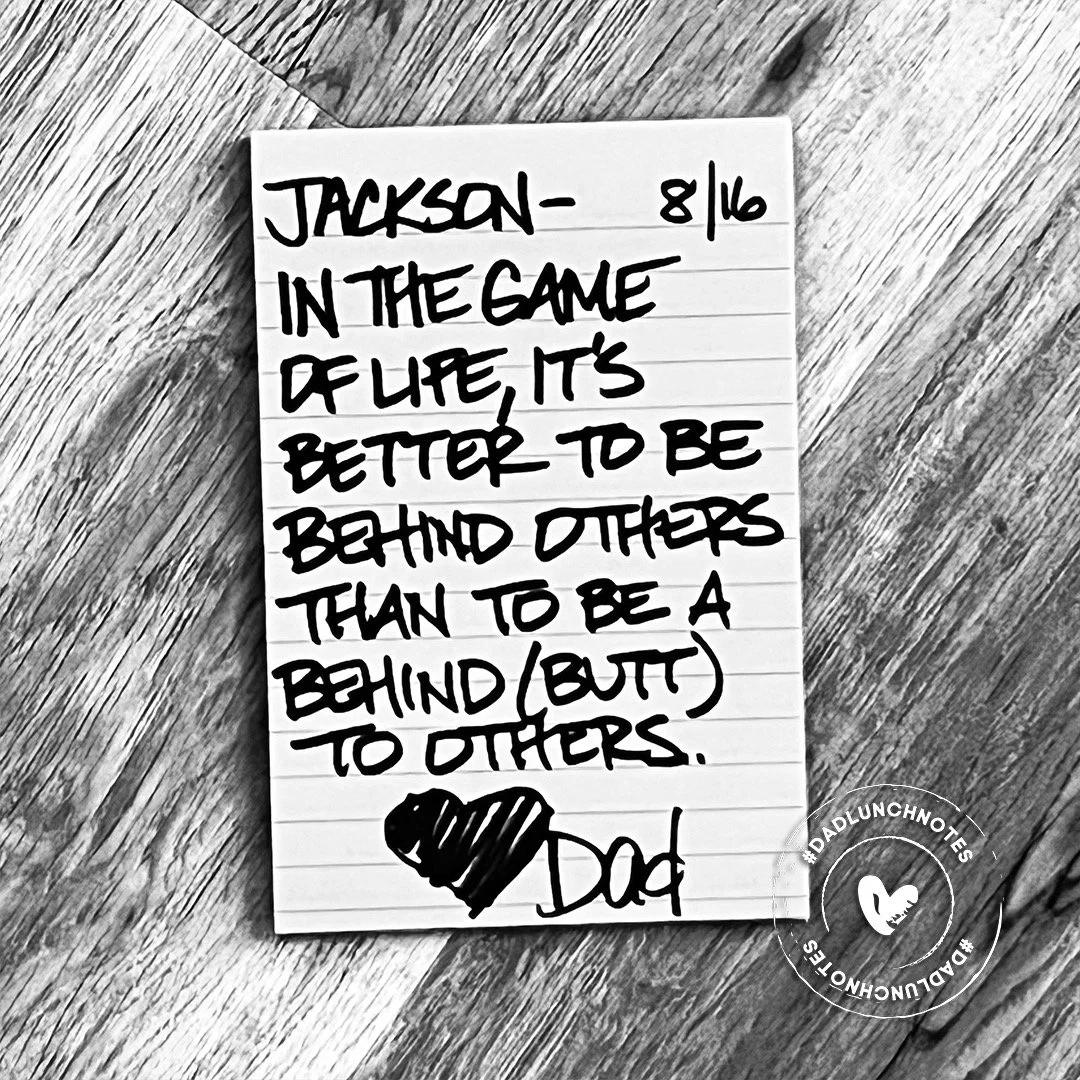 JACKSON- 8/16
IN THE GAME
OF LIFE, IT'S
BETTER TO BE
BEHIND OTHERS
THAN TO BE A
BEHIND (BUTT)
TO OTHERS.
Dad
#DADLUNCHNOTES
#DADLUNCHNOTES